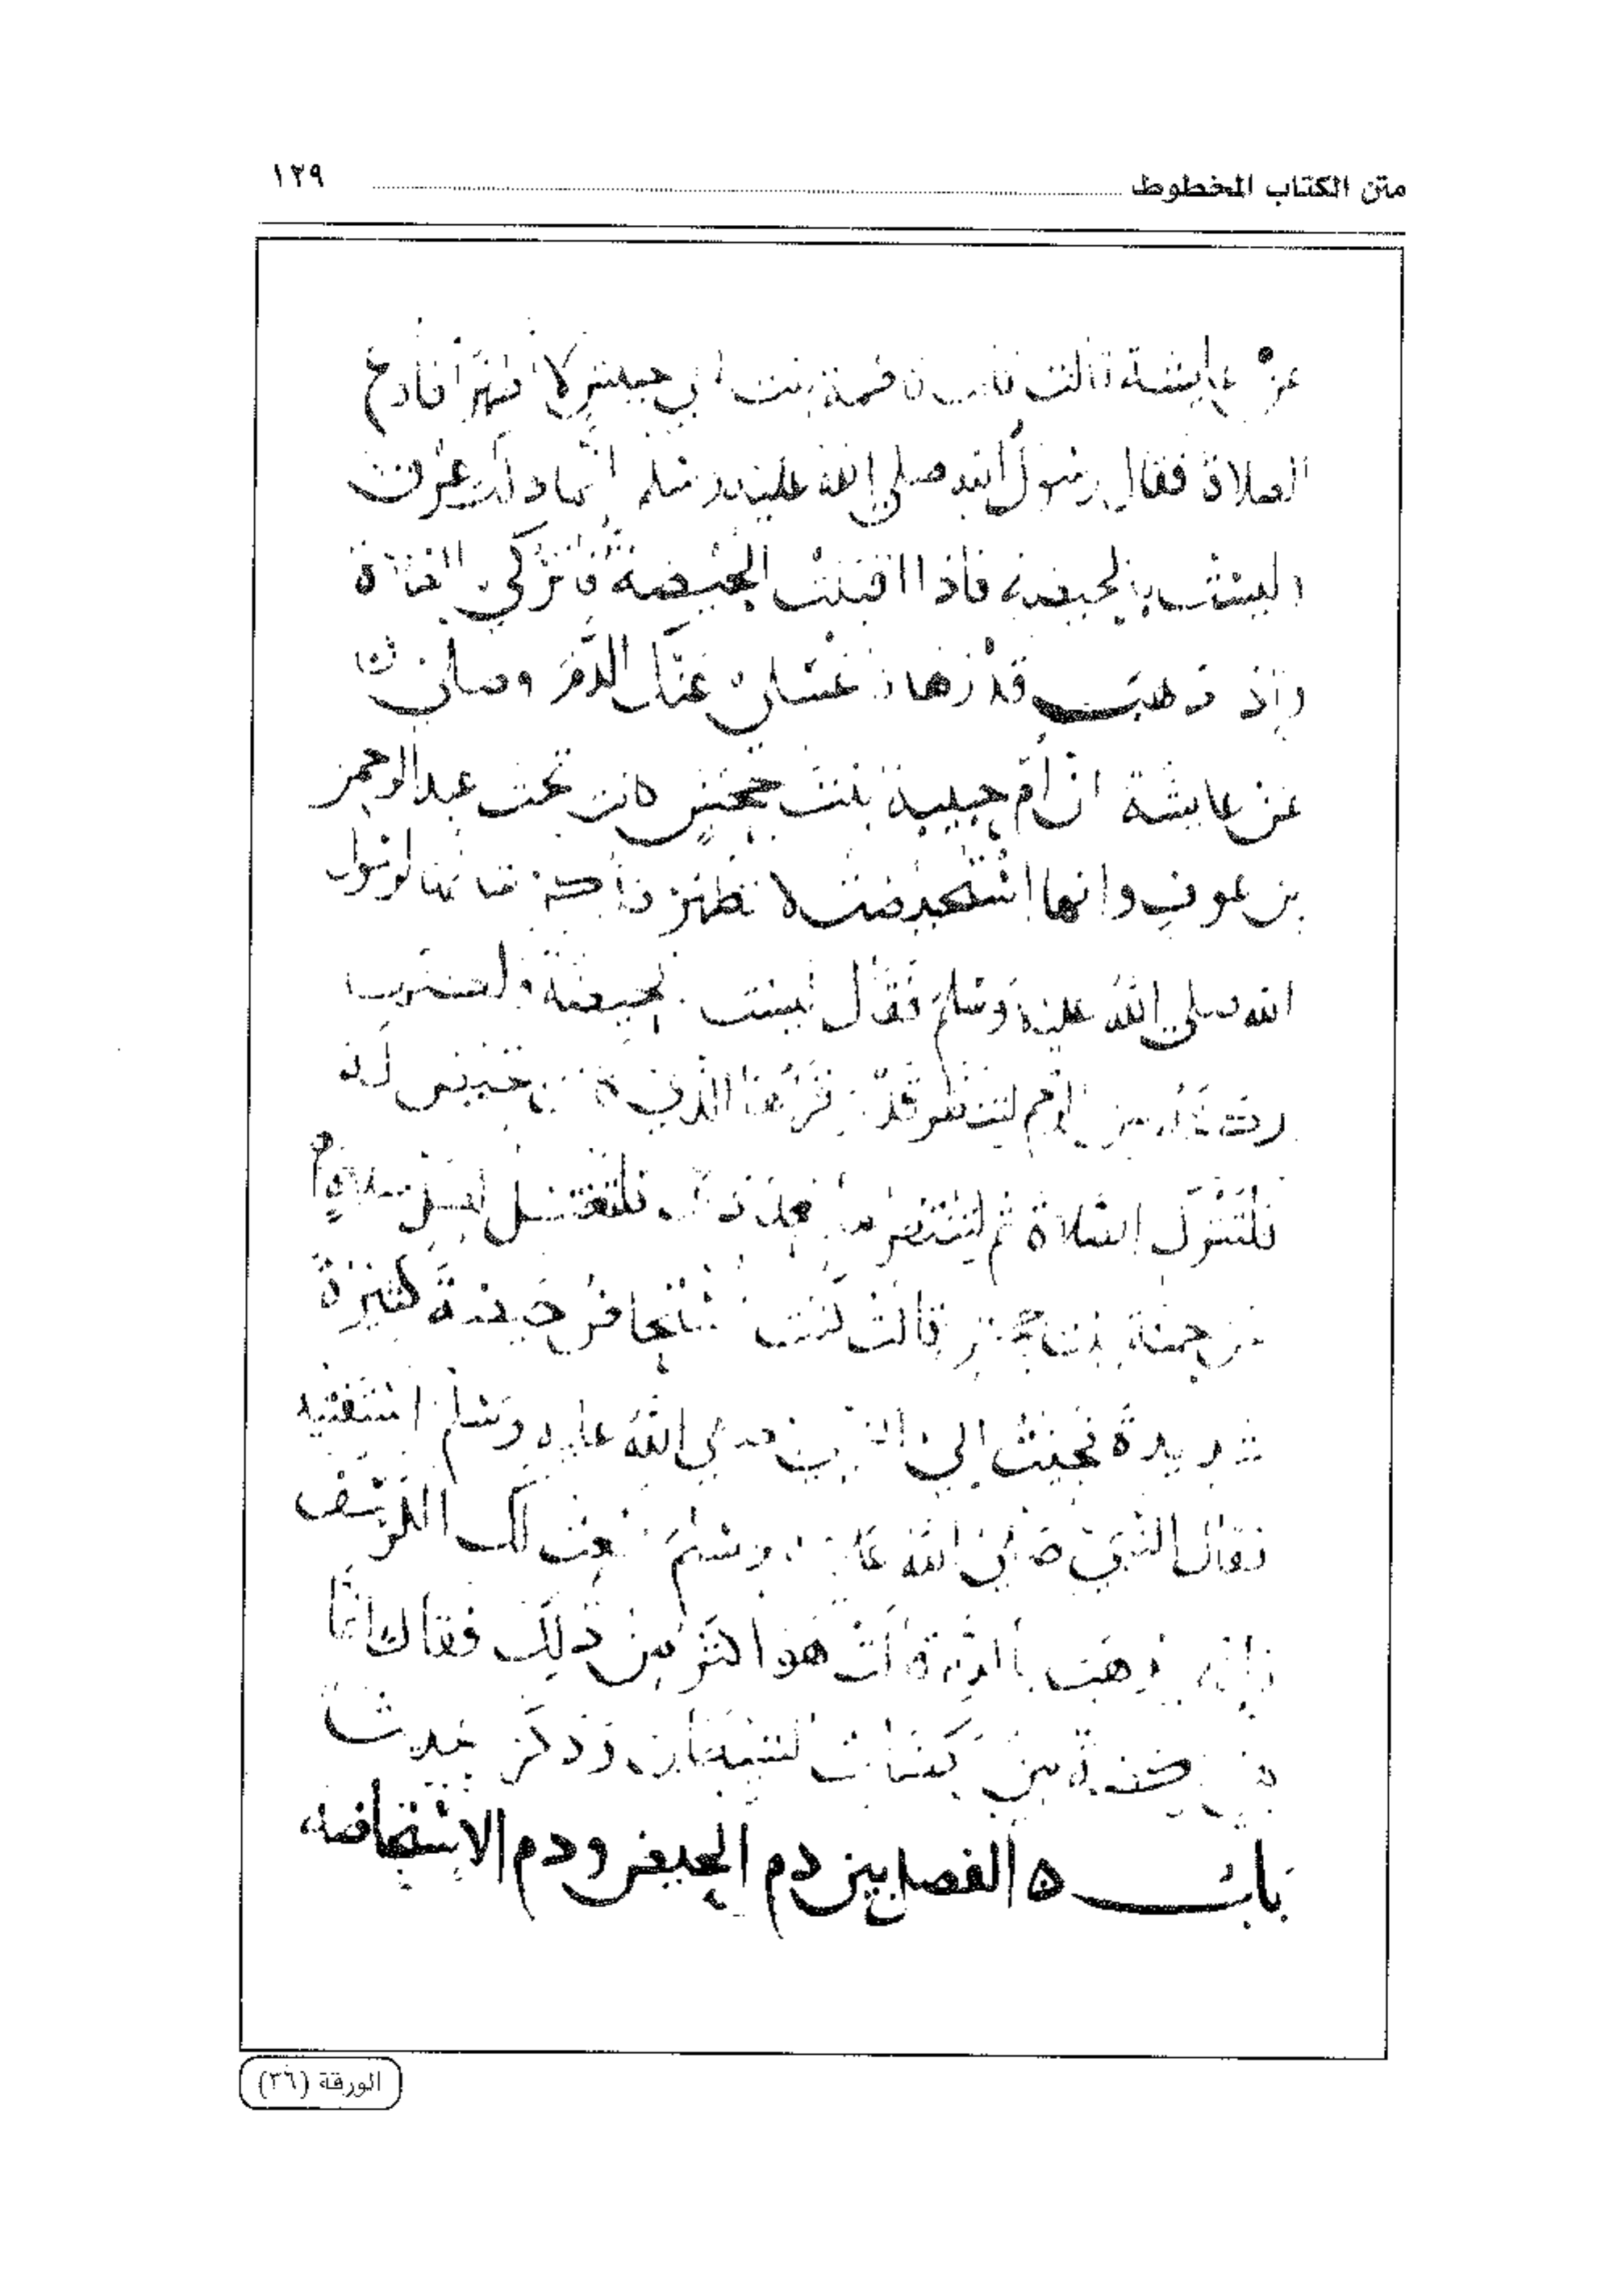 متن الكتاب المخطوط ١٢٩
عن عايشة قالت قالت فاطمة بنت ابي حبيش لا اطهر أفأدع
الصلاة فقال رسول الله صلى الله عليه وسلم انما ذلك عرق
وليست بالحيضة فاذا اقبلت الحيضة فاتركي الصلاة
وإذا ذهب قدرها فاغسلي عنك الدم وصلي
عن عايشة ان أم حبيبة بنت جحش كانت تحت عبد الرحمن
بن عوف وانها استحيضت لا تطهر فذكر شانها لرسول
الله صلى الله عليه وسلم فقال ليست بالحيضة ولكنها
ركضة من الرحم لتنظر قدر قرءها الذي كانت تحيض له
فلتترك الصلاة ثم لتنظر ما بعد ذلك فلتغتسل لكل صلاة
عن حمنة بنت جحش قالت كنت استحاض حيضة كثيرة
شديدة فجئت الى النبي صلى الله عليه وسلم استفتيه
فقال النبي صلى الله عليه وسلم انعت لك الكرسف
فإنه يذهب بالدم قالت هو اكثر من ذلك فقال انما
هي ركضة من ركضات الشيطان وذكر حديثا
باب ه الفصل بين دم الحيض ودم الاستحاضة
الورقة (٣٦)